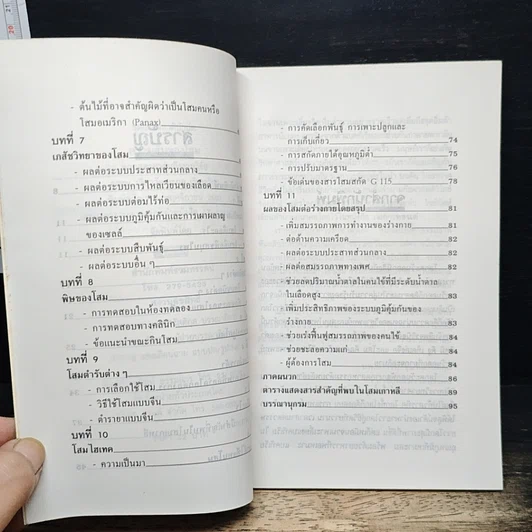 - ต้นไม้ที่อาจสำคัญผิดว่าเป็นโสมคนหรือ
โสมอเมริกา (Panax)
บทที่ 7
เภสัชวิทยาของโสม
- ผลต่อระบบประสาทส่วนกลาง
- ผลต่อระบบการไหลเวียนของเลือด
- ผลต่อระบบต่อมไร้ท่อ
- ผลต่อระบบภูมิคุ้มกันและการเผาผลาญ
ของเซลล์
- ผลต่อระบบสืบพันธุ์
- ผลต่อระบบอื่น ๆ
บทที่ 8
พิษของโสม
- การทดสอบในห้องทดลอง
- การทดสอบทางคลินิก
- ข้อแนะนำขณะกินโสม
บทที่ 9
โสมตำรับต่าง ๆ
- การเลือกใช้โสม
- วิธีใช้โสมแบบจีน
- ตำรายาแบบจีน
บทที่ 10
โสมไฮเทค
- ความเป็นมา
- การคัดเลือกพันธุ์ การเพาะปลูกและ
การเก็บเกี่ยว 74
- การสกัดภายใต้อุณหภูมิต่ำ 75
- การปรับมาตรฐาน 76
- ข้อเด่นของสารโสมสกัด G 115 78
บทที่ 11
ผลของโสมต่อร่างกายโดยสรุป 81
- เพิ่มสมรรถภาพการทำงานของร่างกาย 81
- ต่อต้านความเครียด 82
- ผลต่อระบบประสาทส่วนกลาง 82
- ผลต่อสมรรถภาพทางเพศ 82
- ช่วยลดปริมาณน้ำตาลในคนไข้ที่มีระดับน้ำตาล
ในเลือดสูง 83
- เพิ่มประสิทธิภาพของระบบภูมิคุ้มกันของ
ร่างกาย 83
- ช่วยเร่งฟื้นฟูสมรรถภาพของคนไข้ 84
- ช่วยชะลอความแก่ 84
- ผู้ต้องการโสม 84
ภาคผนวก 86
ตารางแสดงสารสำคัญที่พบในโสมเกาหลี 89
บรรณานุกรม 95